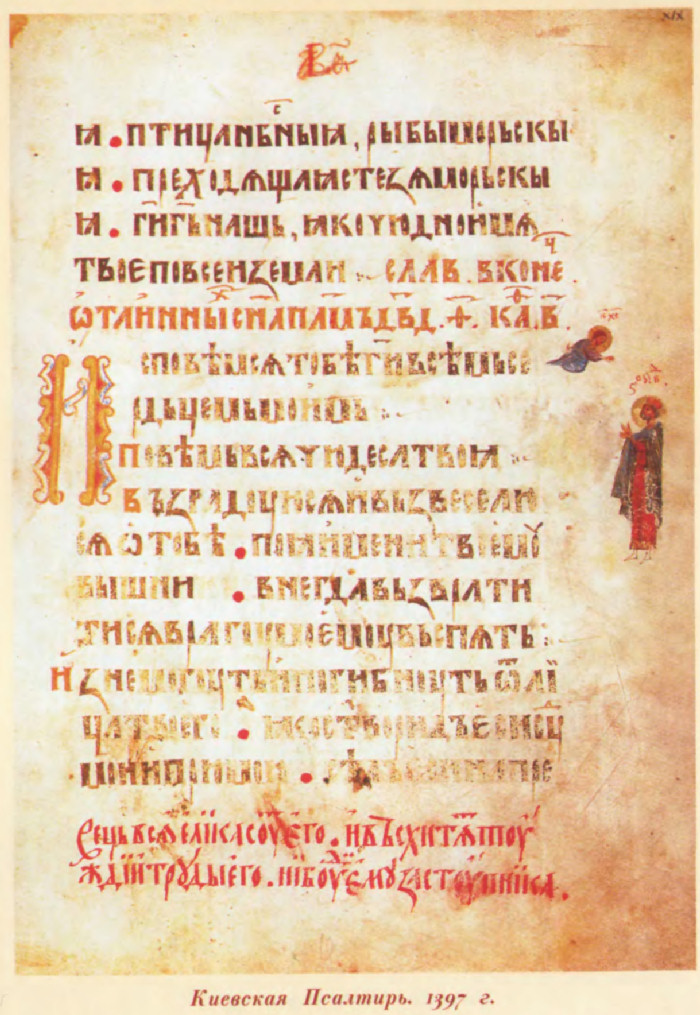 XIX
и · птица нбныи , рыбы морьскы
и · преходѧщаи стеꙁѧ морьскы
и · ги гь нашь , ико чюдно имѧ
твоѥ по всеи ꙁемли ·:· слав · в коне
ѡ таиннꙑ сна плмъ двд · ф · ка · в
исповѣмсѧ тобѣ ги всѣмь се
рдьцемь моимь
повѣмь всѧ чюдеса твои
въꙁрадуюсѧ и въꙁвеселю
сѧ ѡ тобѣ · пою имени твоѥму
вышнии · внегда въꙁврати
тисѧ врагу моѥму въспѧть :
иꙁнемогуть и погибнуть ѿ ли
ца твоѥго · ико створи ѥси су
мои и прю мою ·
его · и въсхитѧть
труды его ·
Киевская Псалтирь. 1397 г.